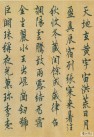 天地玄黃宇宙洪荒日月
盈昃辰宿列張寒來暑往
秋收冬藏閏餘成歲律呂
調陽雲騰致雨露結為霜
金生麗水玉出崑岡劍號
巨闕珠稱夜光菓珍李柰